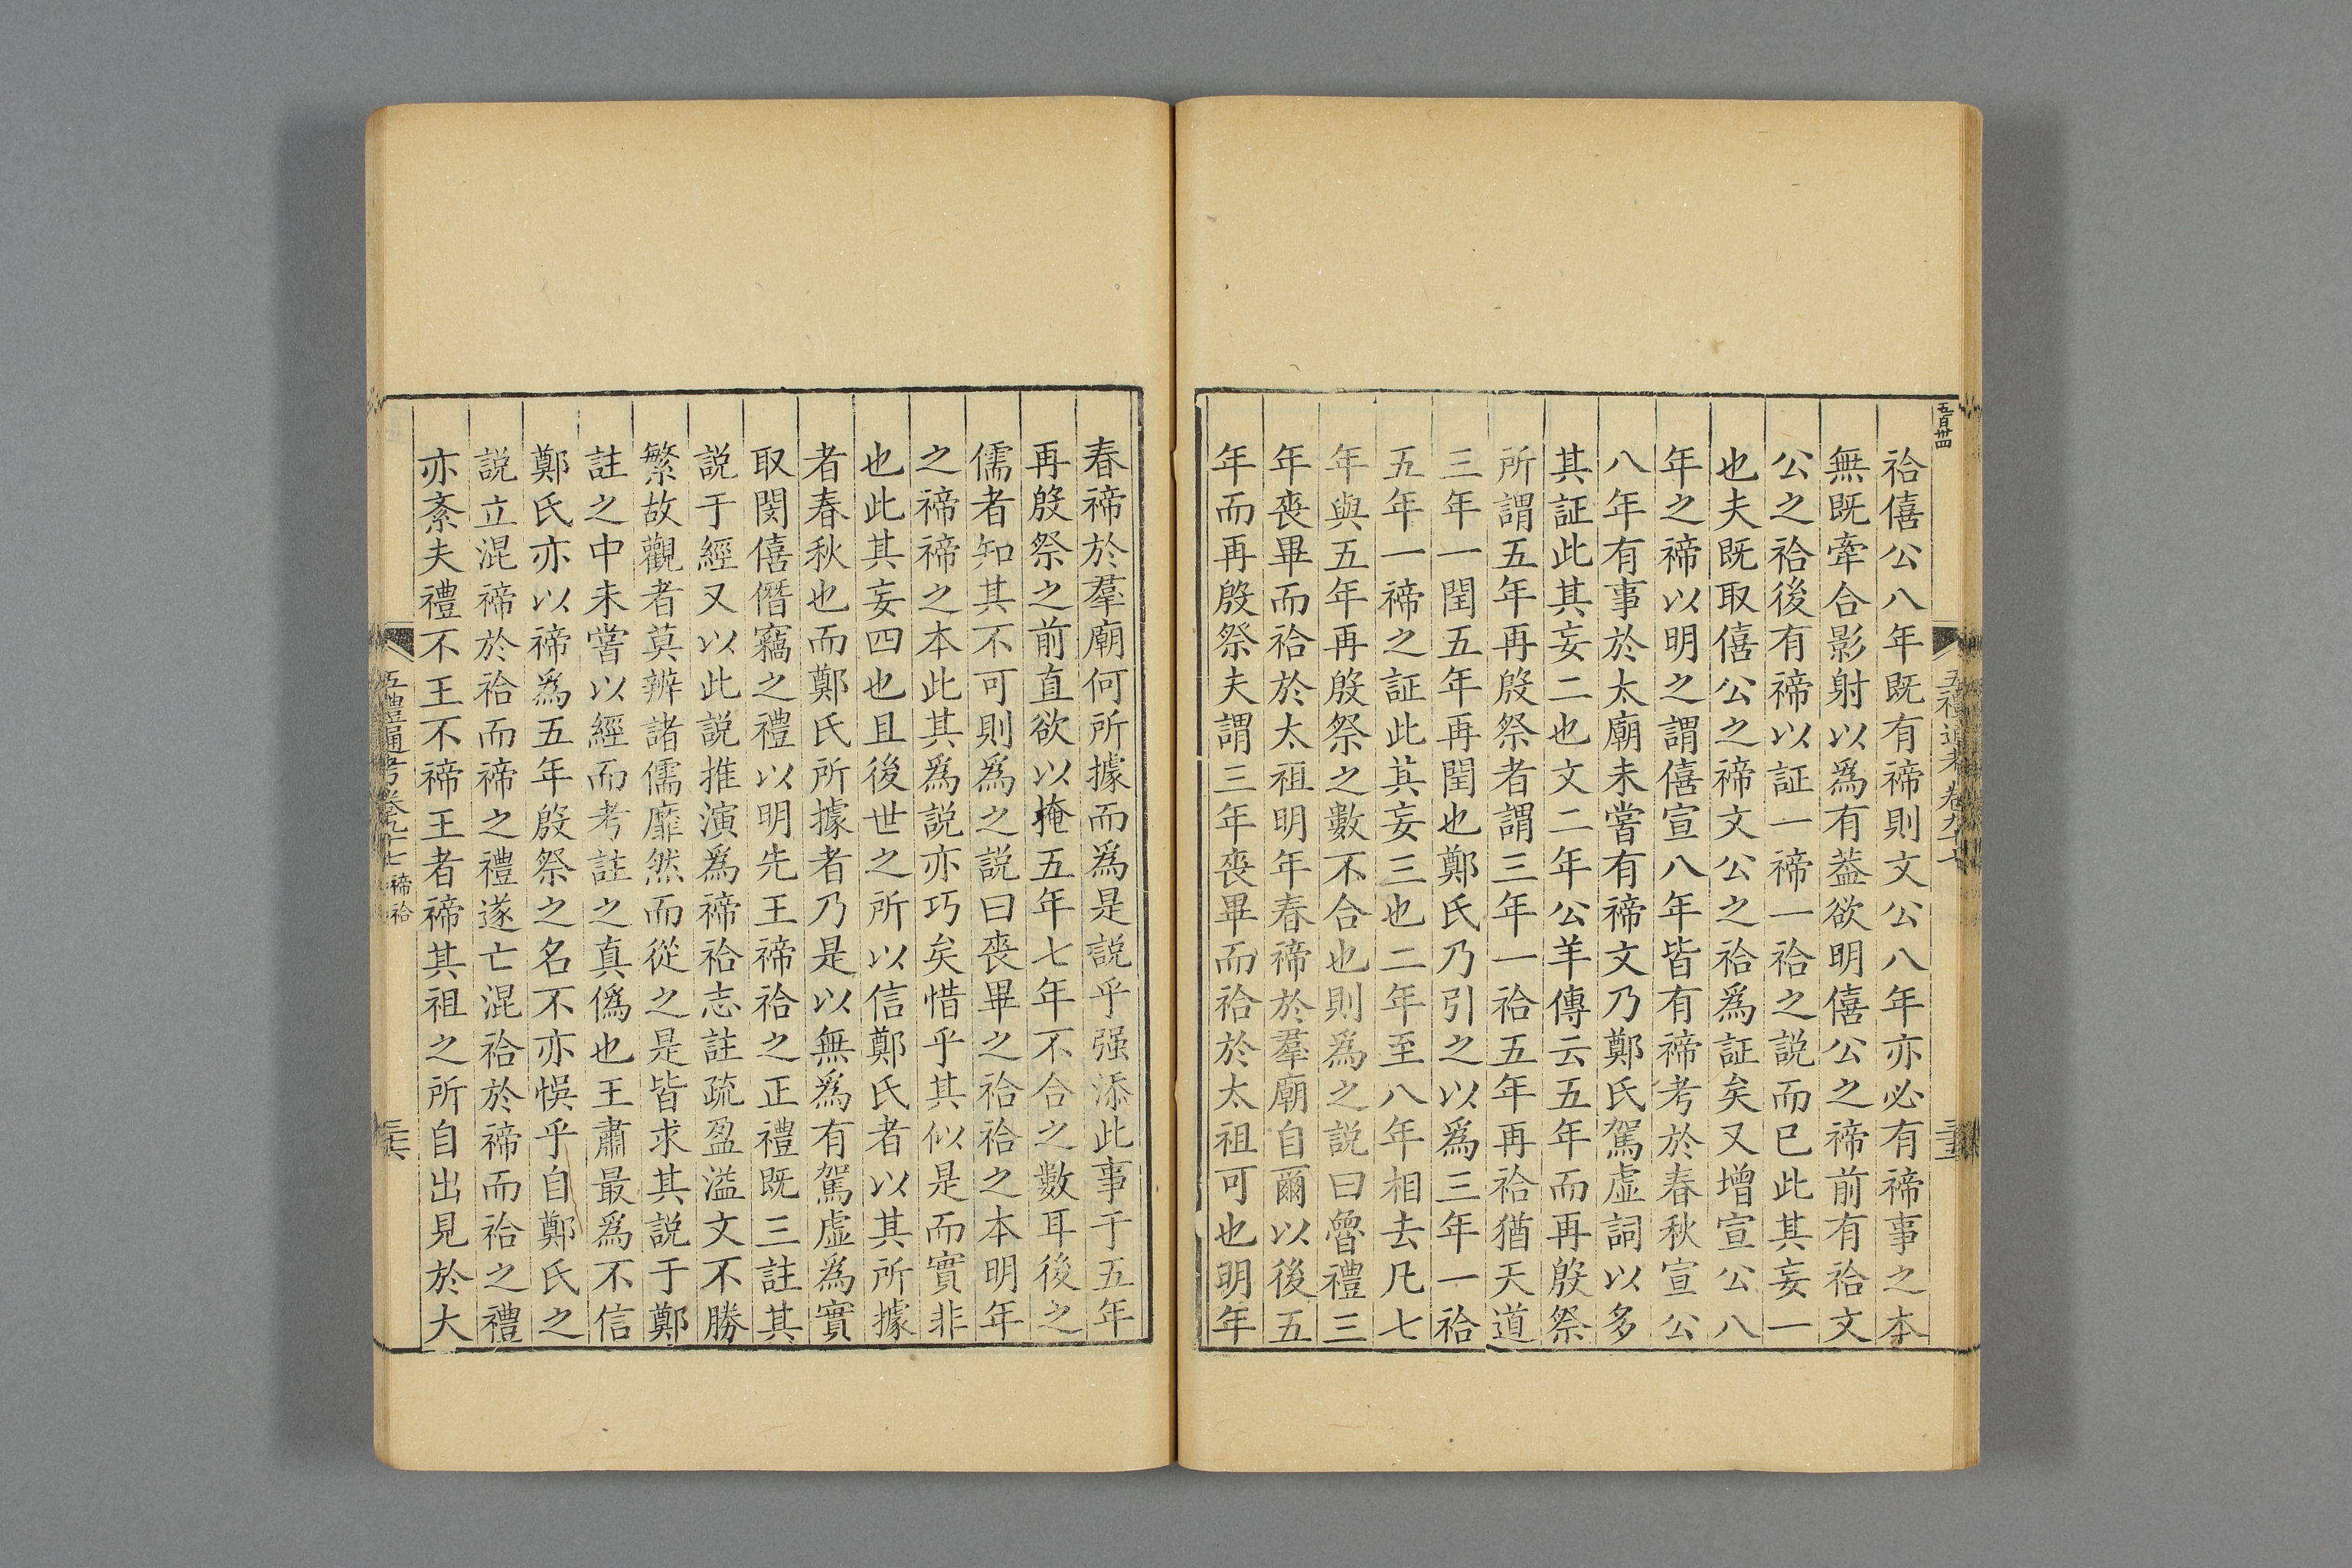 五百卅四
五禮通考卷九十七
祫僖公八年既有禘則文公八年亦必有禘事之本
無既牽合影射以為有葢欲明僖公之禘前有祫文
公之祫後有禘以証一禘一祫之説而已此其妄一
也夫既取僖公之禘文公之祫為証矣又增宣公八
年之禘以明之謂僖宣八年皆有禘考於春秋宣公
八年有事於太廟未嘗有禘文乃鄭氏駕虚詞以多
其証此其妄二也文二年公羊傳云五年而再殷祭
所謂五年再殷祭者謂三年一祫五年再祫猶天道
三年一閏五年再閏也鄭氏乃引之以為三年一祫
五年一禘之証此其妄三也二年至八年相去凡七
年與五年再殷祭之數不合也則為之説曰魯禮三
年喪畢而祫於太祖明年春禘於羣廟自爾以後五
年而再殷祭夫謂三年喪畢而祫於太祖可也明年
春禘於羣廟何所據而為是説乎强添此事于五年
再殷祭之前直欲以掩五年七年不合之數耳後之
儒者知其不可則為之説曰喪畢之祫祫之本明年
之禘禘之本此其為説亦巧矣惜乎其似是而實非
也此其妄四也且後世之所以信鄭氏者以其所據
者春秋也而鄭氏所據者乃是以無為有駕虚為實
取閔僖僭竊之禮以明先王禘祫之正禮既三註其
説于經又以此説推演為禘祫志註疏盈溢文不勝
繁故觀者莫辨諸儒靡然而從之是皆求其説于鄭
註之中未嘗以經而考註之真僞也王肅最為不信
鄭氏亦以禘為五年殷祭之名不亦悞乎自鄭氏之
説立混禘於祫而禘之禮遂亡混祫於禘而祫之禮
亦紊夫禮不王不禘王者禘其祖之所自出見於大
五禮通考卷九十七 禘祫